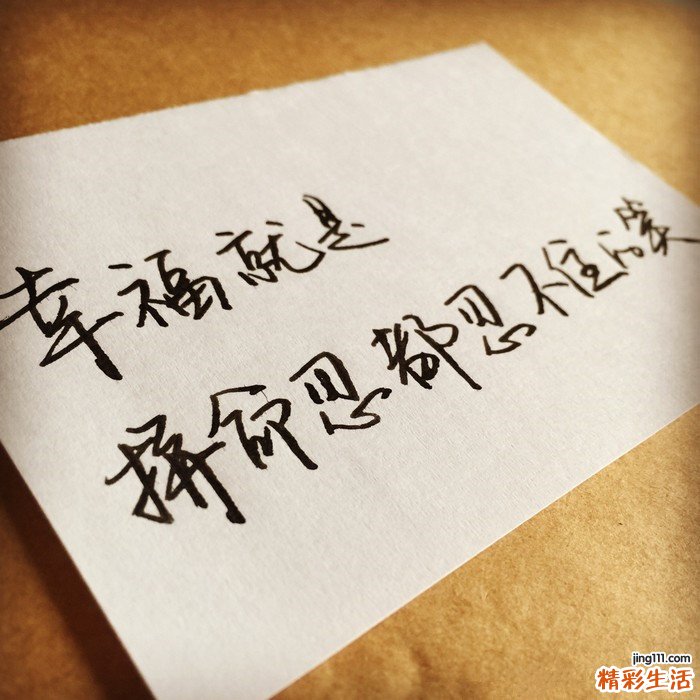 幸福就是
拼命忍都忍不住
jing111.com
精彩生活